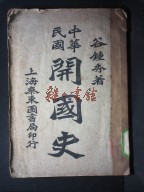 谷鍾秀著
中華
民國
開國史
上海泰東圖書局印行